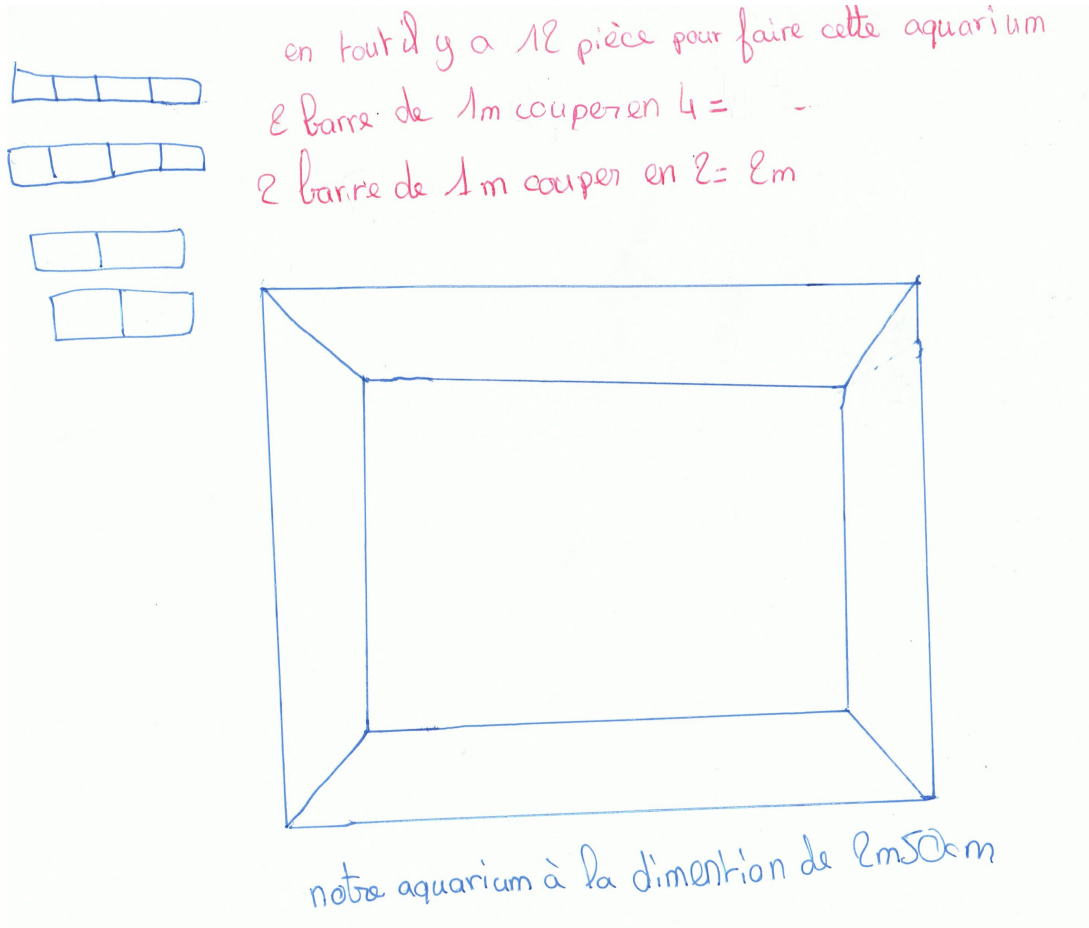 en tout il y a 12 pièce pour faire cette aquarium
2 barre de 1m couper en 4 =
2 barre de 1m couper en 2 = 2m
notre aquarium à la dimention de 2m50cm